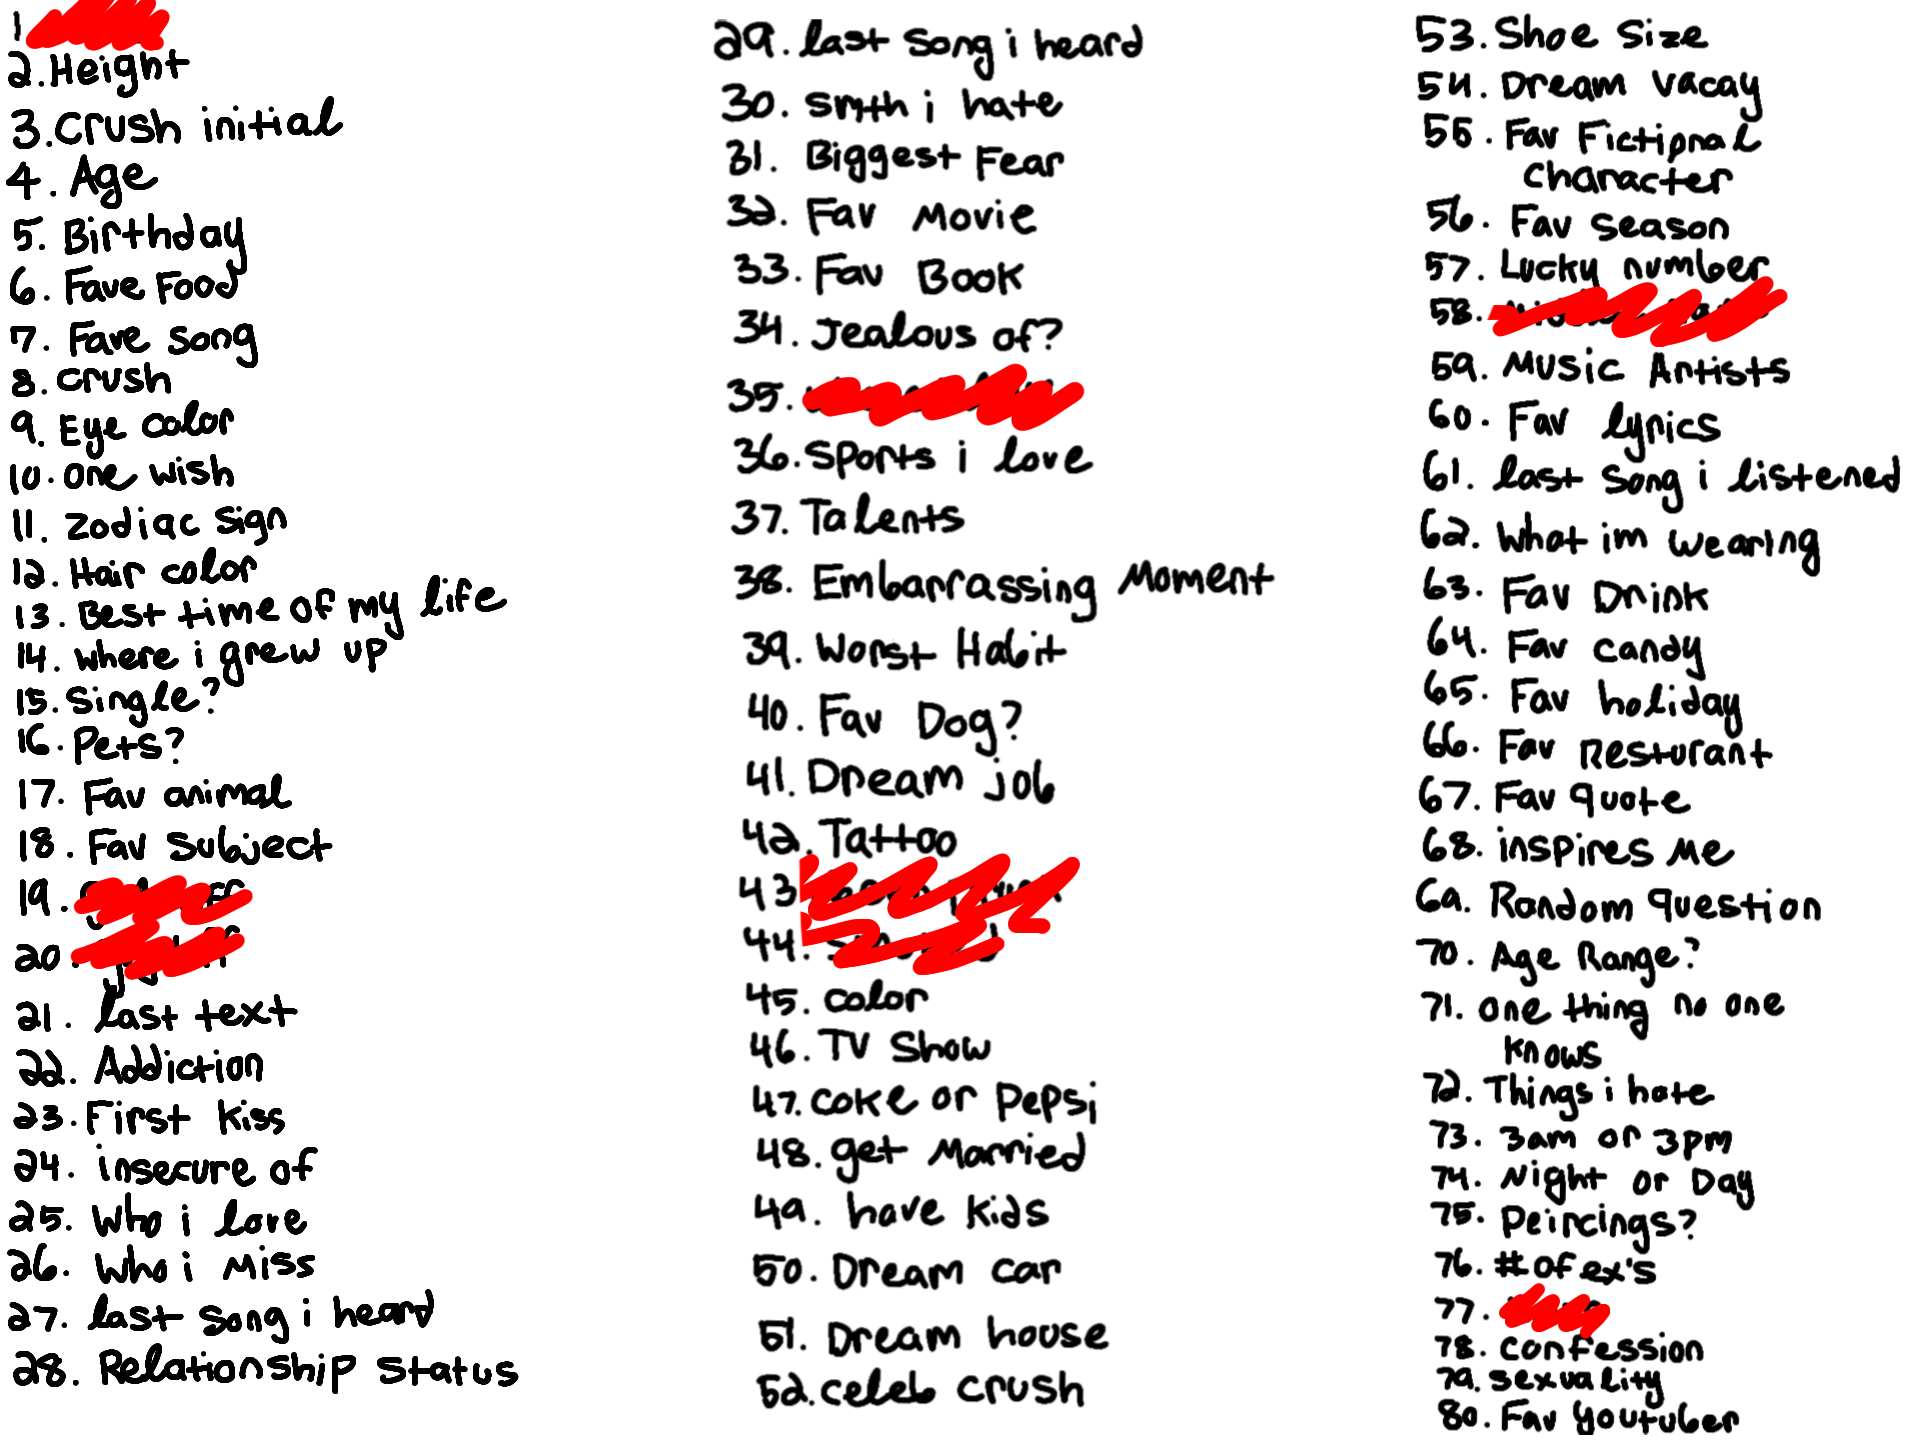 1
2. Height
3. Crush initial
4. Age
5. Birthday
6. Fave Food
7. Fave song
8. crush
9. Eye color
10. one wish
11. zodiac sign
12. Hair color
13. Best time of my life
14. where i grew up
15. single?
16. Pets?
17. Fav animal
18. Fav subject
19.
20.
21. last text
22. Addiction
23. First kiss
24. insecure of
25. who i love
26. who i miss
27. last song i heard
28. Relationship status
29. last song i heard
30. smth i hate
31. Biggest Fear
32. Fav Movie
33. Fav Book
34. Jealous of?
35.
36. Sports i love
37. Talents
38. Embarrassing Moment
39. Worst Habit
40. Fav Dog?
41. Dream job
42. Tattoo
43
44.
45. color
46. TV Show
47. coke or pepsi
48. get married
49. have kids
50. Dream car
51. Dream house
52. celeb crush
53. Shoe Size
54. Dream vacay
55. Fav Fictional
character
56. Fav season
57. Lucky number
58.
59. Music Artists
60. Fav lyrics
61. last song i listened
62. what im wearing
63. Fav Drink
64. Fav candy
65. Fav holiday
66. Fav Resturant
67. Fav quote
68. inspires me
69. Random question
70. Age Range?
71. one thing no one
knows
72. Things i hate
73. 3am or 3pm
74. Night or Day
75. Peircings?
76. # of ex's
77.
78. confession
79. sexuality
80. Fav youtuber